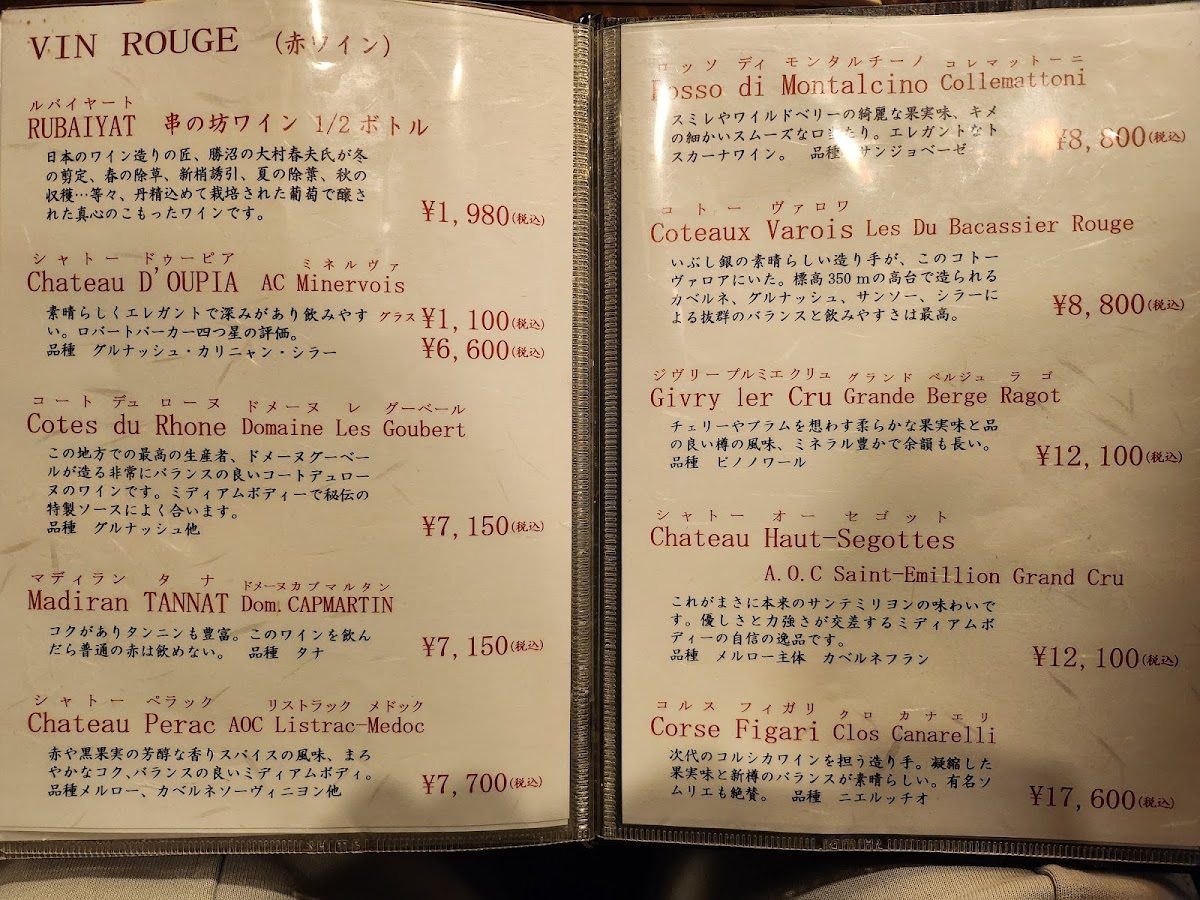 VIN ROUGE (赤ワイン)
ルバイヤート
RUBAIYAT 串の坊ワイン 1/2 ボトル
日本のワイン造りの匠、勝沼の大村春夫氏が冬
の剪定、春の除草、新梢誘引、夏の除葉、秋の
収穫…等々、丹精込めて栽培された葡萄で醸さ
れた真心のこもったワインです。
¥1,980(税込)
シャトー ドゥーピア ミネルヴァ
Chateau D'OUPIA AC Minervois
素晴らしくエレガントで深みがあり飲みやす
い。ロバートパーカー四つ星の評価。
品種 グルナッシュ・カリニャン・シラー
グラス ¥1,100(税込)
¥6,600(税込)
コート デュ ローヌ ドメーヌ レ グーベール
Cotes du Rhone Domaine Les Goubert
この地方での最高の生産者、ドメーヌグーベー
ルが造る非常にバランスの良いコートデュロー
ヌのワインです。ミディアムボディーで秘伝の
特製ソースによく合います。
品種 グルナッシュ他
¥7,150(税込)
マディラン タナ ドメーヌカプマルタン
Madiran TANNAT Dom.CAPMARTIN
コクがありタンニンも豊富。このワインを飲ん
だら普通の赤は飲めない。 品種 タナ
¥7,150(税込)
シャトー ペラック リストラック メドック
Chateau Perac AOC Listrac-Medoc
赤や黒果実の芳醇な香りスパイスの風味、まろ
やかなコク、バランスの良いミディアムボディ。
品種メルロー、カベルネソーヴィニヨン他
¥7,700(税込)
ロッソ ディ モンタルチーノ コレマットーニ
Rosso di Montalcino Collemattoni
スミレやワイルドベリーの綺麗な果実味、キメ
の細かいスムーズな口当たり。エレガントなト
スカーナワイン。 品種 サンジョベーゼ
¥8,800(税込)
コトー ヴァロワ
Coteaux Varois Les Du Bacassier Rouge
いぶし銀の素晴らしい造り手が、このコトー
ヴァロアにいた。標高350mの高台で造られる
カベルネ、グルナッシュ、サンソー、シラーに
よる抜群のバランスと飲みやすさは最高。
¥8,800(税込)
ジヴリー プルミエクリュ グランド ベルジュ ラゴ
Givry 1er Cru Grande Berge Ragot
チェリーやプラムを想わす柔らかな果実味と品
の良い樽の風味、ミネラル豊かで余韻も長い。
品種 ピノノワール
¥12,100(税込)
シャトー オー セゴット
Chateau Haut-Segottes
A.O.C Saint-Emillion Grand Cru
これがまさに本来のサンテミリヨンの味わいで
す。優しさと力強さが交差するミディアムボ
ディーの自信の逸品です。
品種 メルロー主体 カベルネフラン
¥12,100(税込)
コルス フィガリ クロ カナエリ
Corse Figari Clos Canarelli
次代のコルシカワインを担う造り手。凝縮した
果実味と新樽のバランスが素晴らしい。有名ソ
ムリエも絶賛。 品種 ニエルッチオ
¥17,600(税込)